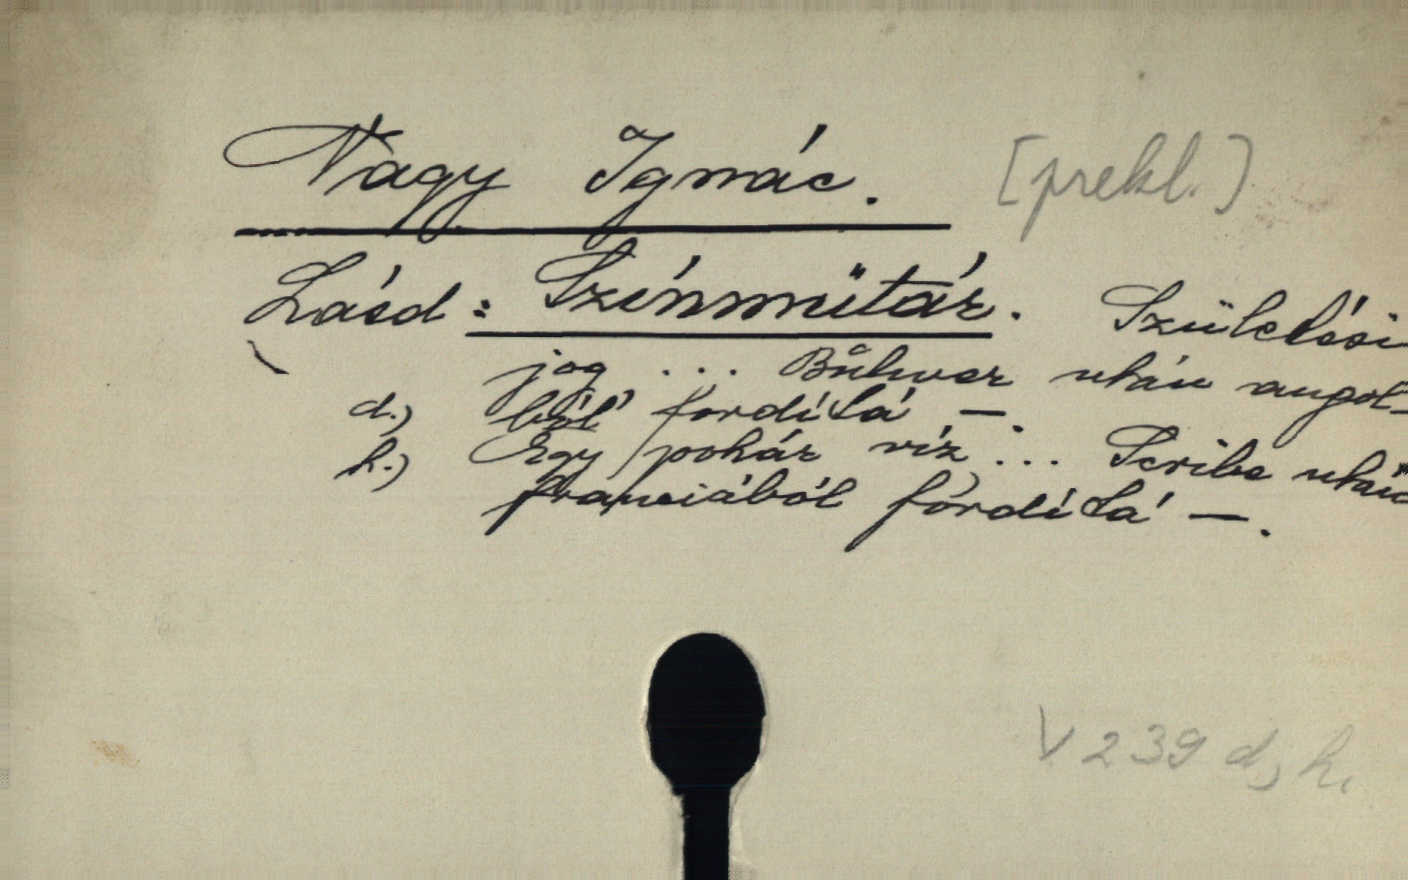 Nagy Ignác. [prekl.]
Lásd: Színműtár. Születési
jog ... Bulwer után angol-
d.) ból fordítá —.
h.) Egy pohár víz ... Scribe után
franciából fordítá —.
V 239 d, h.